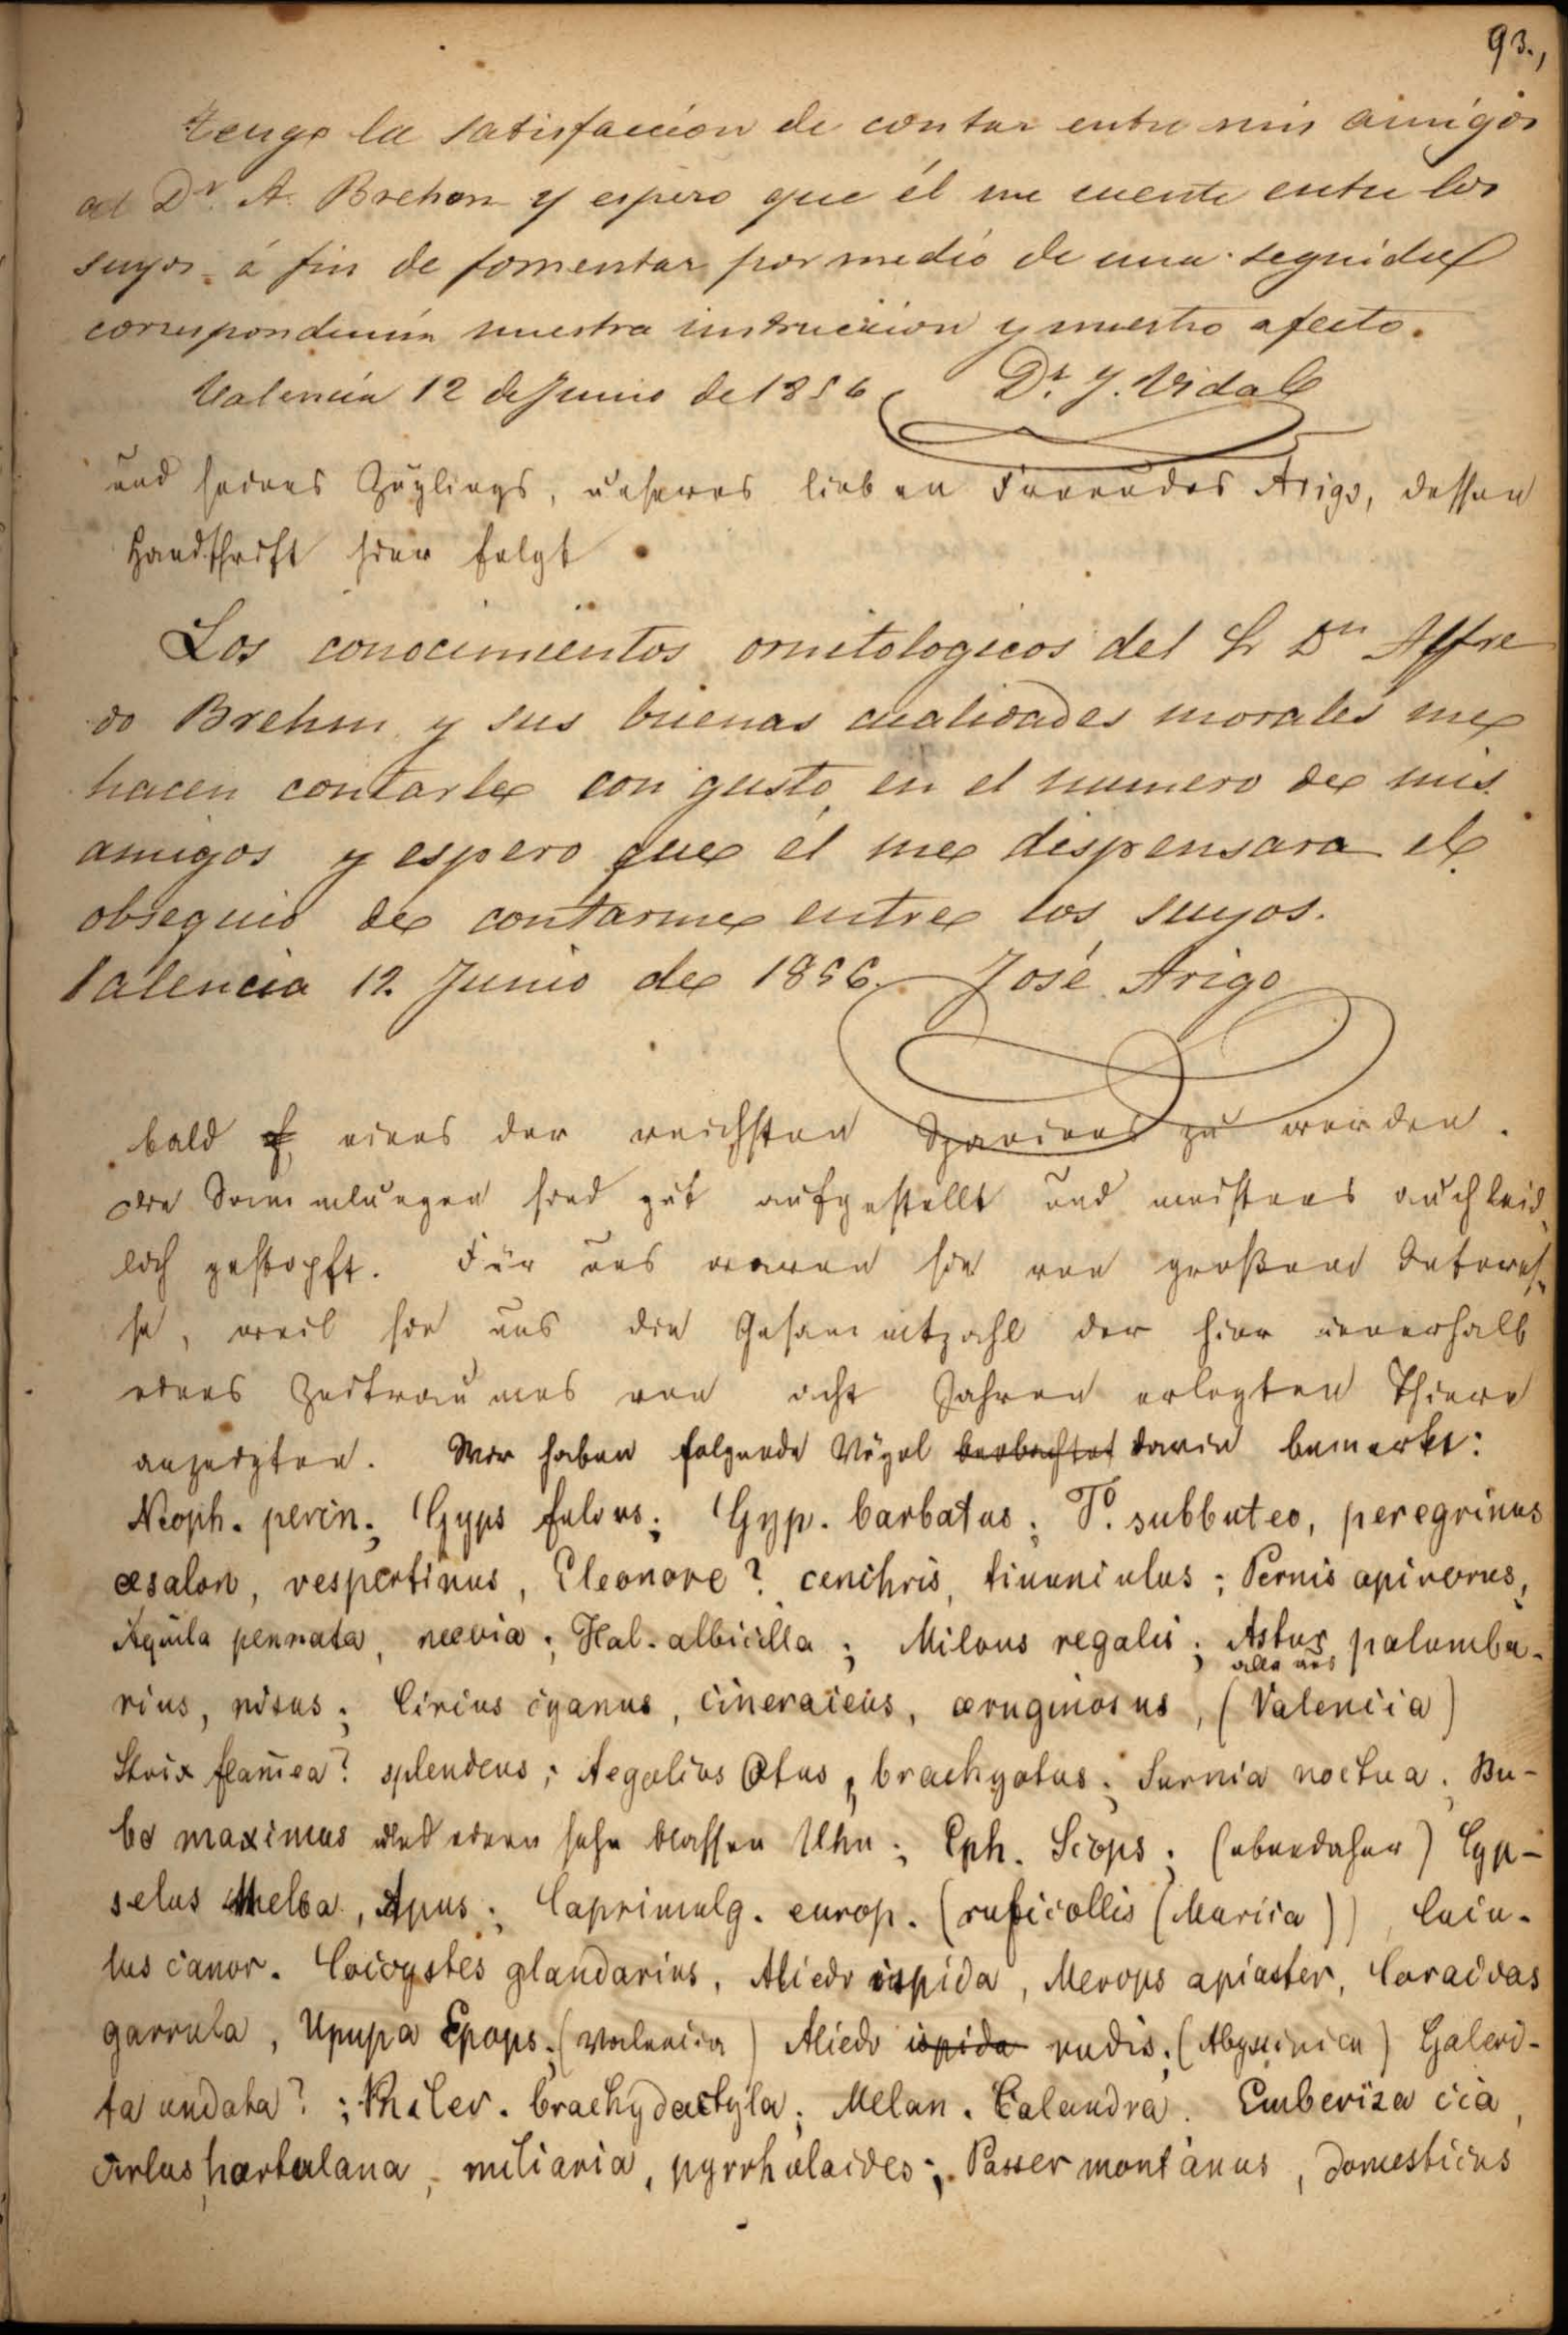 93.,
Tengo la satisfaccion de contar entre mis amigos
al Dr. A. Brehem y espero que él me cuente entre los
suyos á fin de fomentar por medio de una seguida
correspondencia nuestra instruccion y nuestro afecto.
Valencia 12 de Junio de 1856 Dr. J. Vidal
und seines Zöglings, unseres lieben Freundes Arigo, dessen
Handschrift hier folgt
Los conocimientos ornitologicos del Sr Dn Alfre
do Brehm y sus buenas cualidades morales me
hacen contarle con gusto en el numero de mis
amigos y espero que él me dispensara el
obsequio de contarme entre los suyos.
Valencia 12. Junio de 1856. José Arigo
bald eines der reichsten Spaniens zu werden.
Die Sammlungen sind gut aufgestellt und meistens auch leid
lich gestopft. Für uns waren sie von großem Interes-
se, weil sie uns die Gesammtzahl der hier innerhalb
eines Zeitraumes von acht Jahren erlegten Thiere
anzeigten. Wir haben folgende Vögel beobachtet darin bemerkt:
Neoph. percn.; Gyps fulvus; Gyp. barbatus; F. subbuteo, peregrinus
æsalon, vespertinus, Eleonore? cenchris, tinunculus; Pernis apivorus,
Aquila pennata, nævia; Hal. albicilla; Milvus regalis; Astur palumba-
alle aus
rius, nisus; Circus cyanus, cineraceus, æruginosus, (Valencia)
Strix flam̄ea? splendens; Aegolius Otus, brachyotus; Surnia noctua; Bu-
bo maximus und einen sehr blassen Uhu; Eph. Scops; (ebendaher) Cyp-
selus Melba, Apus; Caprimulg. europ. (ruficollis (Murcia)) Cucu-
lus canor. Coccystes glandarius, Alcedo ispida, Merops apiaster, Coracias
garrula, Upupa Epops; (Valencia) Alcedo ispida rudis; (Abyssinien) Galeri-
ta undata?; Philer. brachydactyla; Melan. Calandra. Emberiza cia,
cirlus, hortulana, miliaria, pyrrhuloides; Passer montanus, domesticus